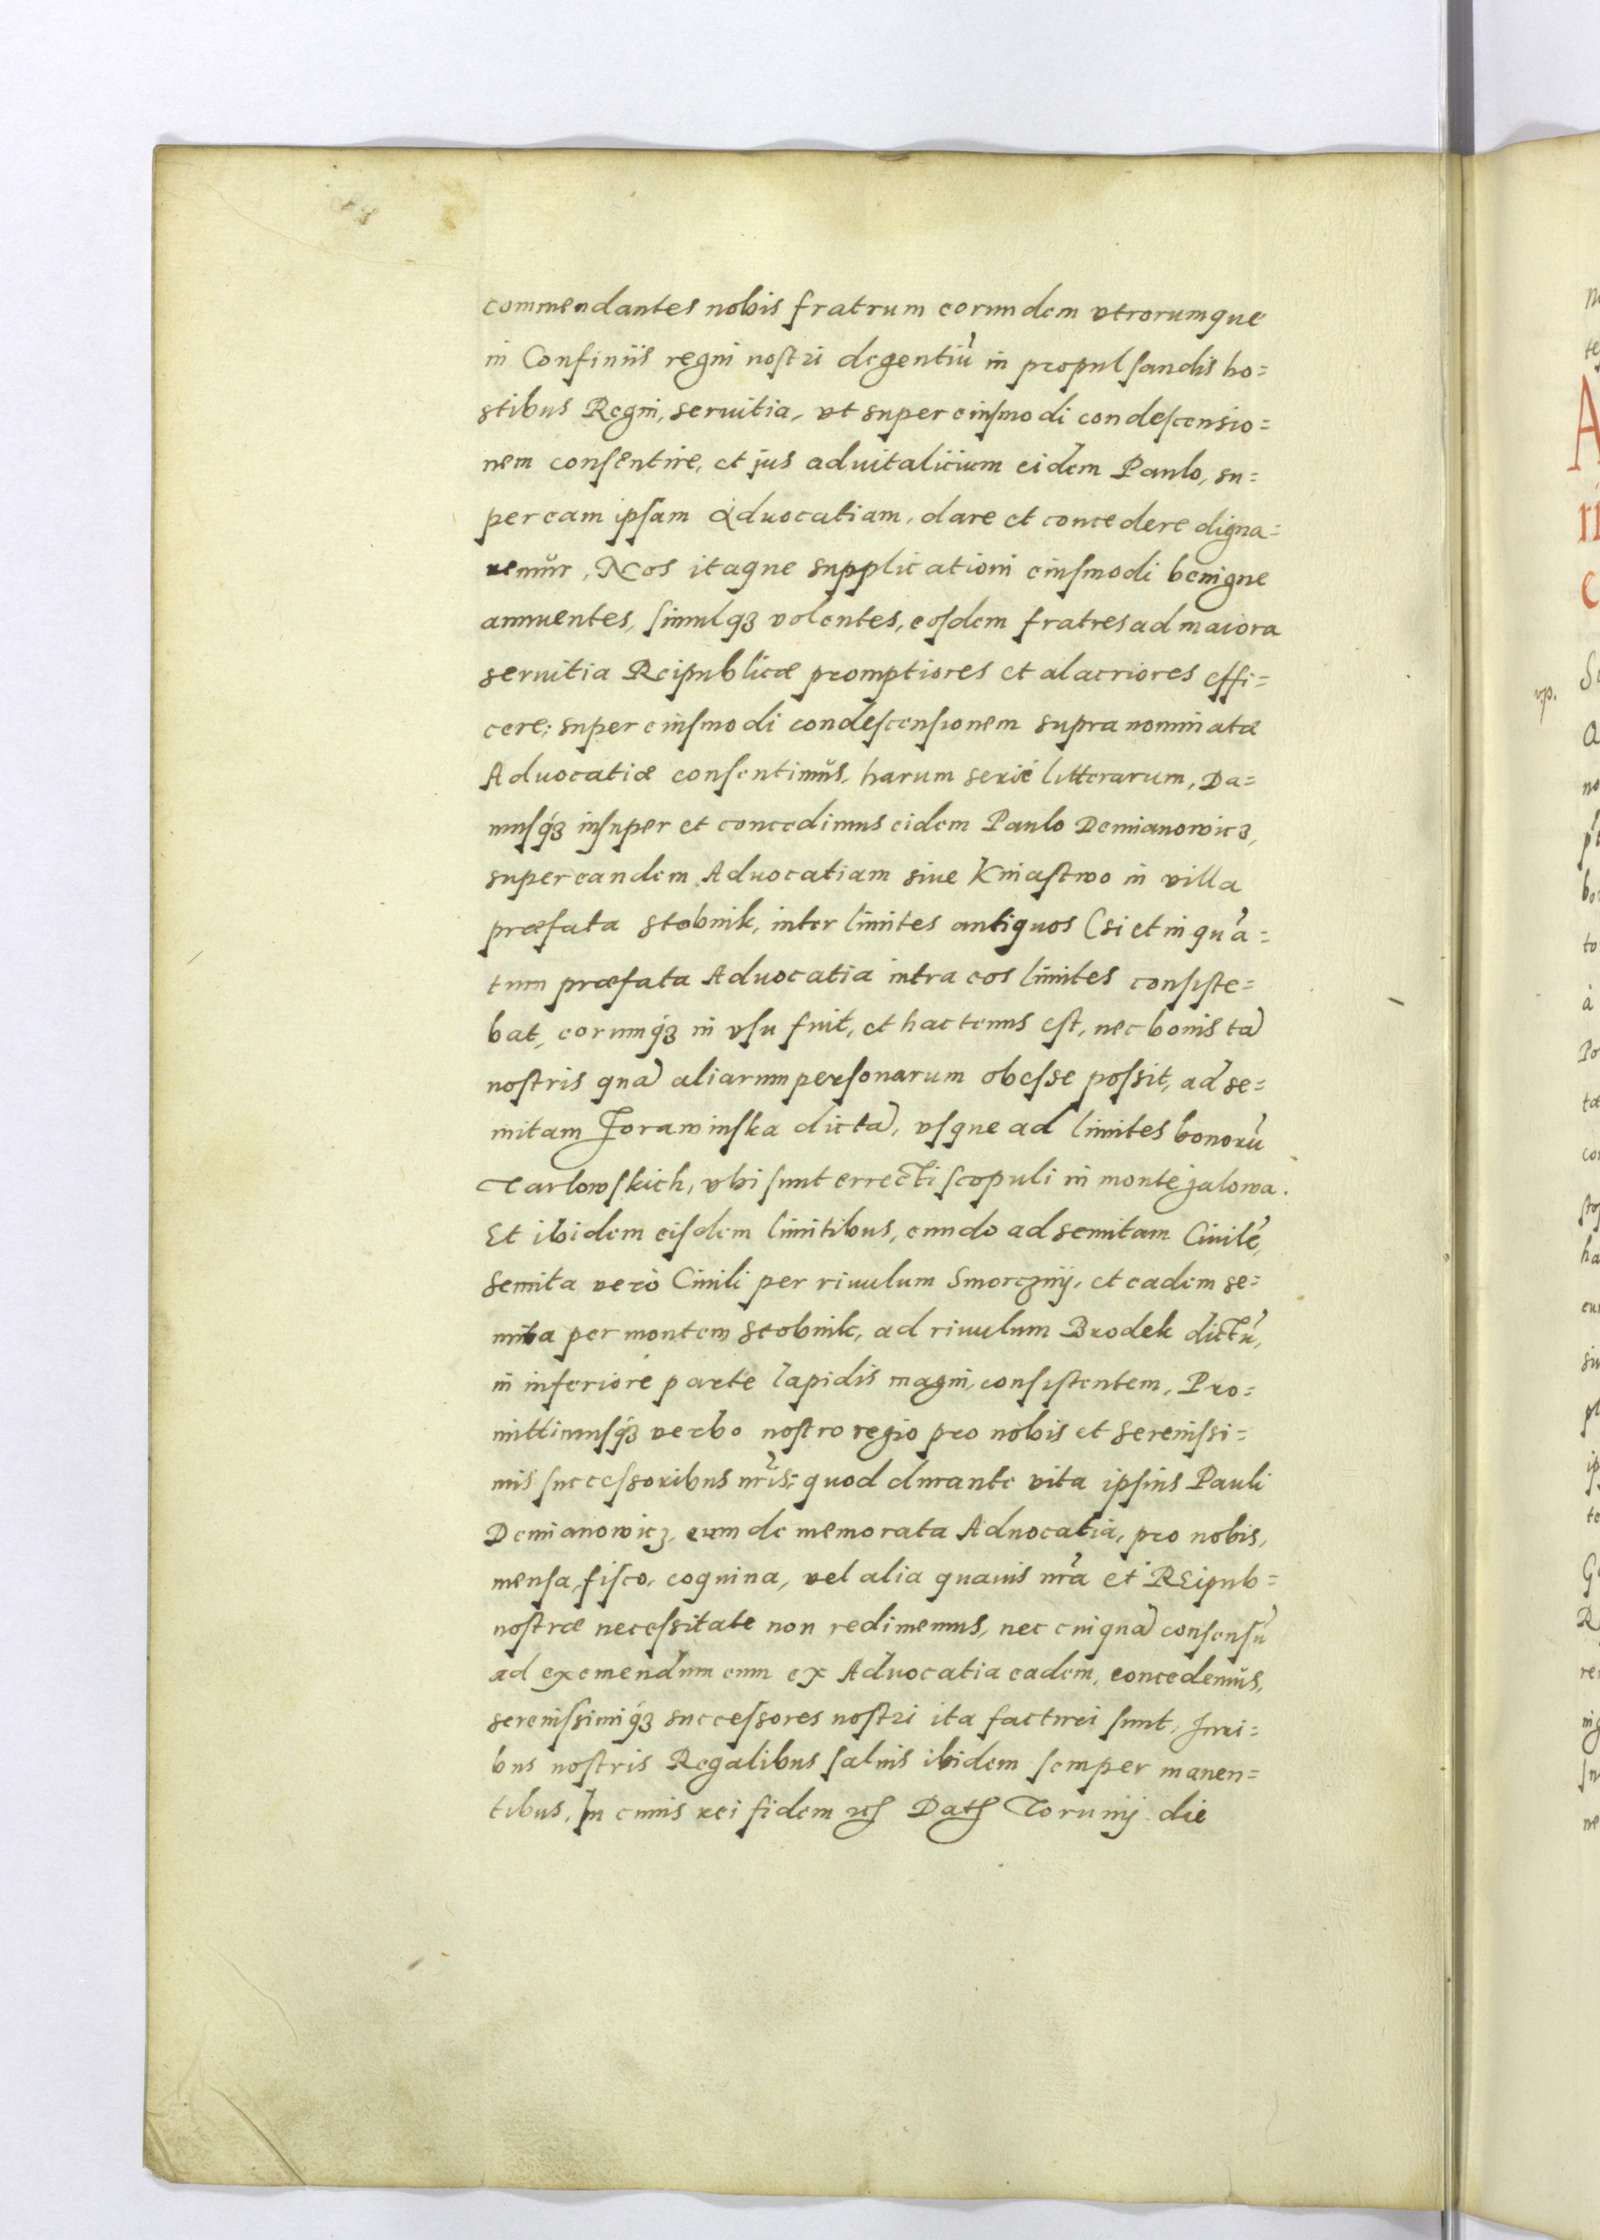 commendantes nobis fratrum eorundem vtrorumque
in Confiniis regni nostri degentiu᷈ in propulsandis ho=
stibus Regni, seruitia, vt super eiusmodi condescensio=
nem consentire, et jus aduitalicium eidem Paulo, su=
per eam ipsam Aduocatiam, dare et concedere digna=
remur, Nos itaque supplicationi eiusmodi benigne
annuentes, simulqꝫ volentes, eosdem fratres ad maiora
seruitia Reipublicæ promptiores et alacriores effi=
cere: super eiusmodi condescensionem supra nominatæ
Aduocatiæ consentimus, harum serie litterarum, Da=
musqꝫ insuper et concedimus eidem Paulo Demianowicz,
super eandem Aduocatiam siue Kniastwo in villa
præfata Stobnik, inter limites antiquos (si et in qua᷈=
tum præfata Aduocatia intra eos limites consiste=
bat, eorumqꝫ in vsu fuit, et hactenus est, nec bonis ta᷈
nostris qua᷈ aliarum personarum obesse possit, ad se=
mitam Jorawinska dicta᷈, vsque ad limites bonoru᷈
Tarlowskich, vbi sunt errecti scopuli in monte jalowa.
Et ibidem eisdem limitibus, eundo ad semitam Ciuile᷈,
semita verò Ciuili per riuulum Smorcznij, et eadem se=
mita per montem Stobnik, ad riuulum Brodek dictu᷈,
in inferiore parte lapidis magni, consistentem, Pro=
mittimusqꝫ verbo nostro regio pro nobis et serenissi=
mis successoribus nr᷈is: quod durante vita ipsius Pauli
Demianowicz, eum de memorata Aduocatia, pro nobis,
mensa, fisco, coquina, vel alia quauis nr᷈a et REipub=
nostræ necessitate non redimemus, nec cuiqua᷈ consensu᷈
ad exemendum eum ex Aduocatia eadem, concedemus,
serenissimiqꝫ successores nostri ita facturi sunt, Juri=
bus nostris Regalibus saluis ibidem semper manen=
tibus, In cuius rei fidem etc Dat Torunij die
vp.